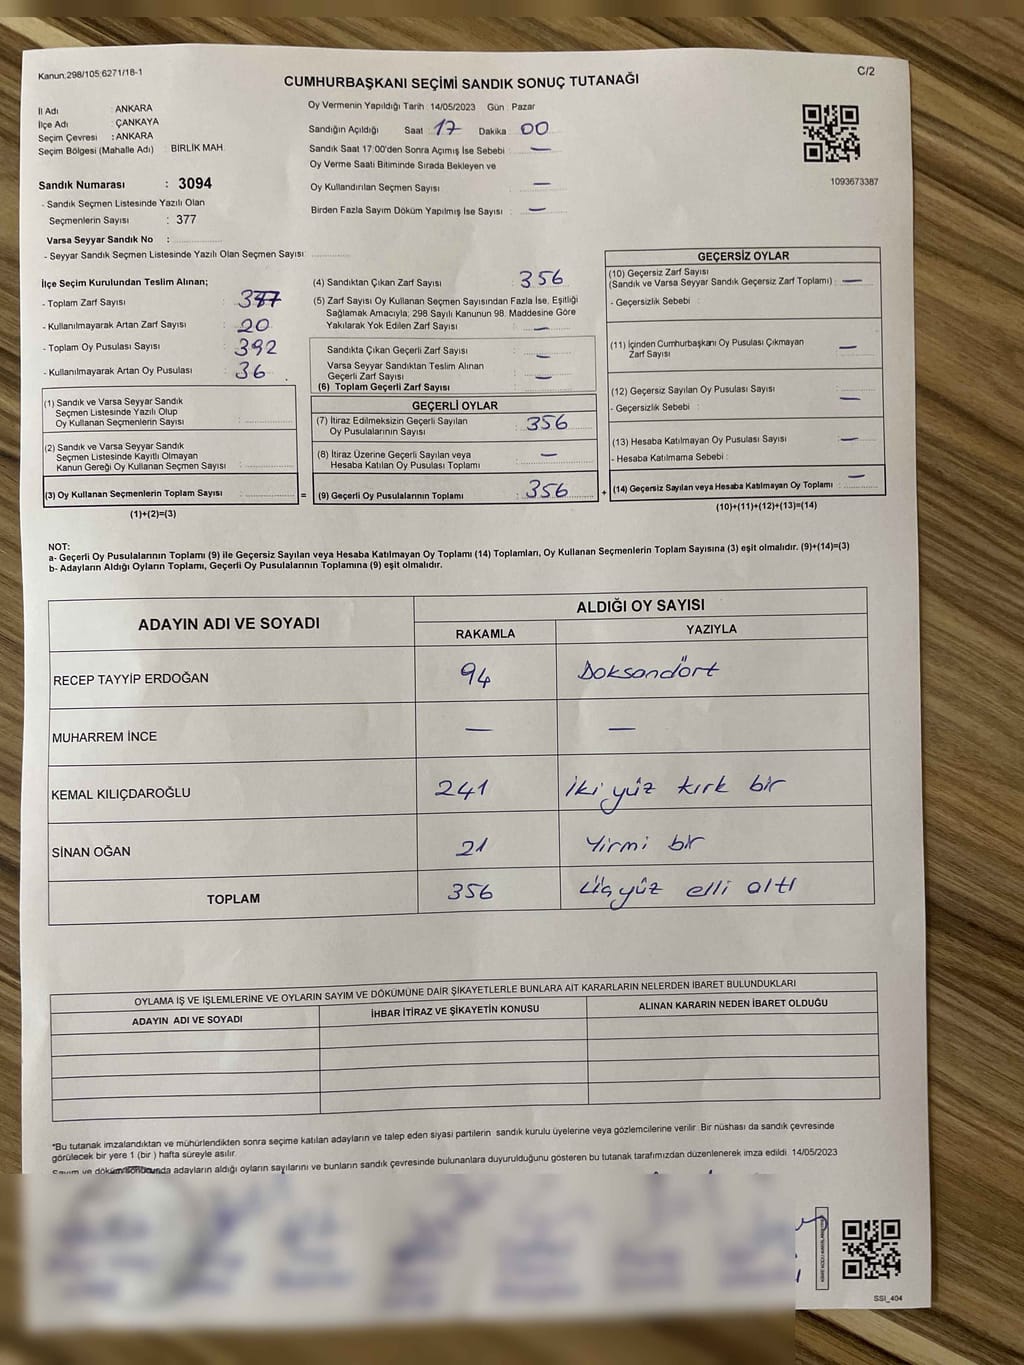 Kanun.298/105.6271/18-1
C/2
CUMHURBAŞKANI SEÇİMİ SANDIK SONUÇ TUTANAĞI
İl Adı : ANKARA
İlçe Adı : ÇANKAYA
Seçim Çevresi : ANKARA
Seçim Bölgesi (Mahalle Adı) : BİRLİK MAH.
Sandık Numarası : 3094
- Sandık Seçmen Listesinde Yazılı Olan
Seçmenlerin Sayısı : 377
Varsa Seyyar Sandık No :
- Seyyar Sandık Seçmen Listesinde Yazılı Olan Seçmen Sayısı:
Oy Vermenin Yapıldığı Tarih : 14/05/2023 Gün : Pazar
Sandığın Açıldığı Saat : 17 Dakika : 00
Sandık Saat 17:00'den Sonra Açımış İse Sebebi : —
Oy Verme Saati Bitiminde Sırada Bekleyen ve
Oy Kullandırılan Seçmen Sayısı —
Birden Fazla Sayım Döküm Yapılmış İse Sayısı : —
1093673387
İlçe Seçim Kurulundan Teslim Alınan;
- Toplam Zarf Sayısı : 377
- Kullanılmayarak Artan Zarf Sayısı : 20
- Toplam Oy Pusulası Sayısı : 392
- Kullanılmayarak Artan Oy Pusulası : 36
(1) Sandık ve Varsa Seyyar Sandık
Seçmen Listesinde Yazılı Olup
Oy Kullanan Seçmenlerin Sayısı :
(2) Sandık ve Varsa Seyyar Sandık
Seçmen Listesinde Kayıtlı Olmayan
Kanun Gereği Oy Kullanan Seçmen Sayısı :
(3) Oy Kullanan Seçmenlerin Toplam Sayısı :
(1)+(2)=(3)
=
(4) Sandıktan Çıkan Zarf Sayısı : 356
(5) Zarf Sayısı Oy Kullanan Seçmen Sayısından Fazla İse, Eşitliği
Sağlamak Amacıyla; 298 Sayılı Kanunun 98. Maddesine Göre
Yakılarak Yok Edilen Zarf Sayısı : —
Sandıkta Çıkan Geçerli Zarf Sayısı : —
Varsa Seyyar Sandıktan Teslim Alınan
Geçerli Zarf Sayısı : —
(6) Toplam Geçerli Zarf Sayısı :
GEÇERLİ OYLAR
(7) İtiraz Edilmeksizin Geçerli Sayılan
Oy Pusulalarının Sayısı : 356
(8) İtiraz Üzerine Geçerli Sayılan veya
Hesaba Katılan Oy Pusulası Toplamı : —
(9) Geçerli Oy Pusulalarının Toplamı : 356
+
GEÇERSİZ OYLAR
(10) Geçersiz Zarf Sayısı
(Sandık ve Varsa Seyyar Sandık Geçersiz Zarf Toplamı) : —
- Geçersizlik Sebebi :
(11) İçinden Cumhurbaşkanı Oy Pusulası Çıkmayan
Zarf Sayısı : —
(12) Geçersiz Sayılan Oy Pusulası Sayısı : —
- Geçersizlik Sebebi :
(13) Hesaba Katılmayan Oy Pusulası Sayısı : —
- Hesaba Katılmama Sebebi :
(14) Geçersiz Sayılan veya Hesaba Katılmayan Oy Toplamı : —
(10)+(11)+(12)+(13)=(14)
NOT:
a- Geçerli Oy Pusulalarının Toplamı (9) ile Geçersiz Sayılan veya Hesaba Katılmayan Oy Toplamı (14) Toplamları, Oy Kullanan Seçmenlerin Toplam Sayısına (3) eşit olmalıdır. (9)+(14)=(3)
b- Adayların Aldığı Oyların Toplamı, Geçerli Oy Pusulalarının Toplamına (9) eşit olmalıdır.
ADAYIN ADI VE SOYADI
ALDIĞI OY SAYISI
RAKAMLA YAZIYLA
RECEP TAYYİP ERDOĞAN 94 Doksandört
MUHARREM İNCE — —
KEMAL KILIÇDAROĞLU 241 İki yüz kırk bir
SİNAN OĞAN 21 Yirmi bir
TOPLAM 356 Üç yüz elli altı
OYLAMA İŞ VE İŞLEMLERİNE VE OYLARIN SAYIM VE DÖKÜMÜNE DAİR ŞİKAYETLERLE BUNLARA AİT KARARLARIN NELERDEN İBARET BULUNDUKLARI
ADAYIN ADI VE SOYADI İHBAR İTİRAZ VE ŞİKAYETİN KONUSU ALINAN KARARIN NEDEN İBARET OLDUĞU
*Bu tutanak imzalandıktan ve mühürlendikten sonra seçime katılan adayların ve talep eden siyasi partilerin sandık kurulu üyelerine veya gözlemcilerine verilir. Bir nüshası da sandık çevresinde
görülecek bir yere 1 (bir) hafta süreyle asılır.
Sayım ve döküm sonucunda adayların aldığı oyların sayılarını ve bunların sandık çevresinde bulunanlara duyurulduğunu gösteren bu tutanak tarafımızdan düzenlenerek imza edildi. 14/05/2023
SSI_404